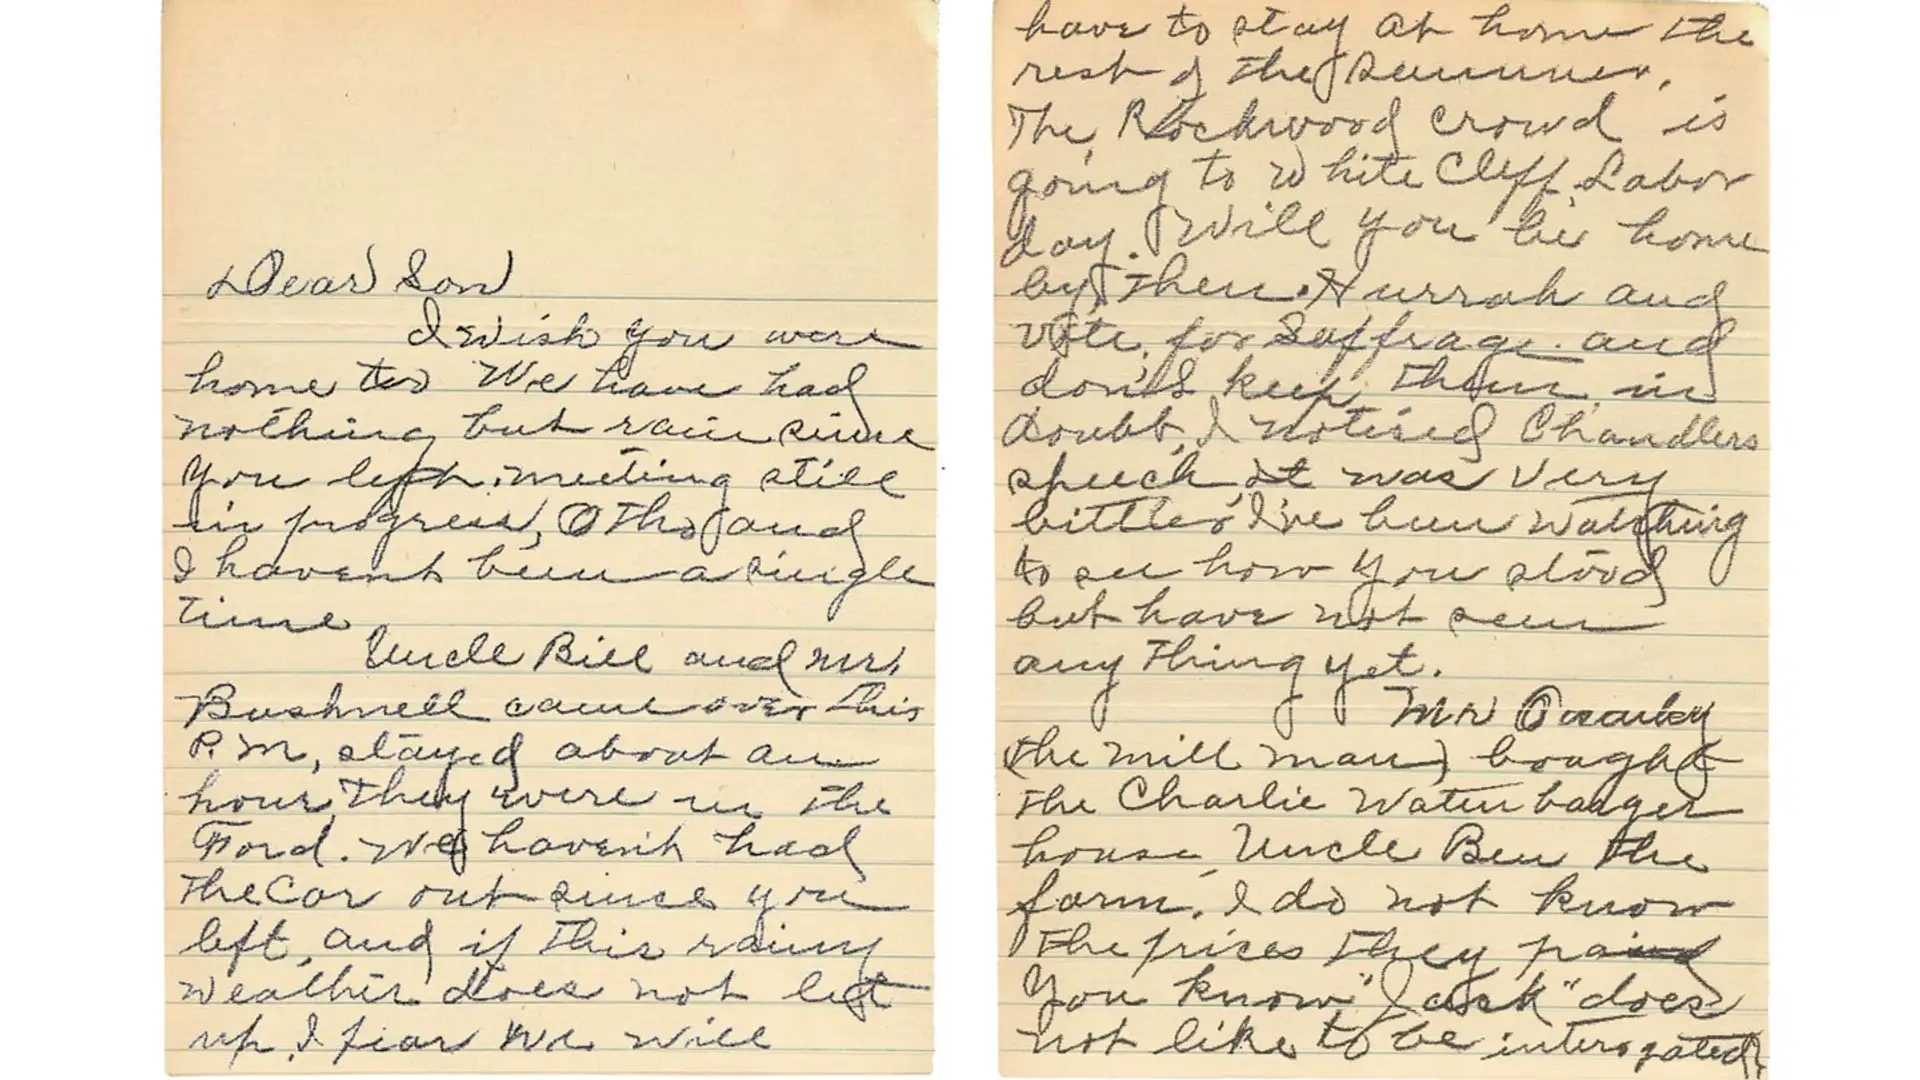 Dear Son
I wish you were
home too We have had
nothing but rain since
you left. meeting still
in progress, Otho and
I havent been a single
time
Uncle Bill and Mr.
Bushnell came over this
P.M, stayed about an
hour, They were in the
Ford. We haven't had
the Car out since you
left, and if this rainy
weather does not let
up, I fear we will
have to stay at home the
rest of the summer.
The Rockwood crowd is
going to White Cliff Labor
day. Will you be home
by then. Hurrah and
vote for Suffrage and
don't keep them in
doubt, I noticed Chandlers
speech it was very
bitter I've been watching
to see how you stood
but have not seen
any thing yet.
Mr
(the mill man) bought
the Charlie Waterbarger
house Uncle Ben the
farm. I do not know
the prices they paid
You know "Jack" does
not like to be interogated,